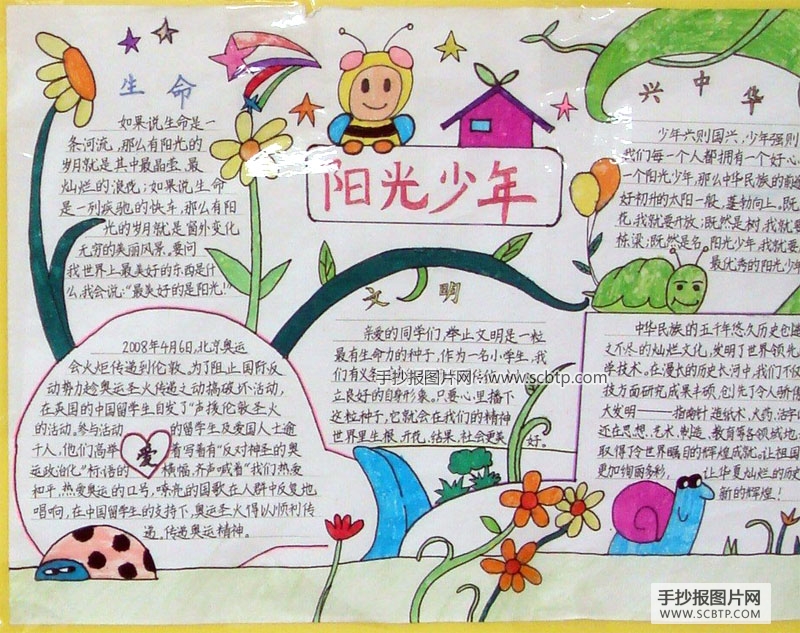 阳光少年
生命
如果说生命是一
条河流,那么有阳光的
岁月就是其中最晶莹、最
灿烂的浪花;如果说生命
是一列疾驰的快车,那么有阳
光的岁月就是窗外变化
无穷的美丽风景。要问
我世界上最美好的东西是什
么,我会说:“最美好的是阳光!”
2008年4月6日,北京奥运
会火炬传递到伦敦,为了阻止国际反
动势力趁奥运圣火传递之动搞破坏活动,
在英国的中国留学生自发了“声援伦敦圣火
的活动。参与活动的留学生及爱国人士逾
千人,他们高举着写着有“反对神圣的奥
运政治化”标语的横幅,齐声喊着“我们热爱
和平,热爱奥运的口号,嘹亮的国歌在人群中反复地
唱响,在中国留学生的支持下,奥运圣火得以顺利传
递,传递奥运精神。
爱
文明
亲爱的同学们,举止文明是一粒
最有生命力的种子,作为一名小学生,我
们有义
手抄报图片网:www.scbtp.com
立良好的自身形象。只要心里播下
这粒种子,它就会在我们的精神
世界里生根、开花、结果,社会更美好。
兴中华
少年兴则国兴,少年强则
我们每一个人都拥有一个好心
一个阳光少年,那么中华民族的前途
好初升的太阳一般,蓬勃向上。既
花,我就要开放;既然是树,我就要
栋梁;既然是名阳光少年,我就要
最优秀的阳光少年
中华民族的五千年悠久历史创造
之不尽的灿烂文化,发明了世界领先
学技术。在漫长的历史长河中,我们不仅
技方面研究成果丰硕,创先了令人骄傲
大发明——指南针、造纸术、火药、活字
还在思想、艺术、制造、教育等各领域地
取得了令世界瞩目的辉煌成就。让祖国
更加绚丽多彩,让华夏灿烂的历史
新的辉煌!
手抄报图片网
WWW.SCBTP.COM